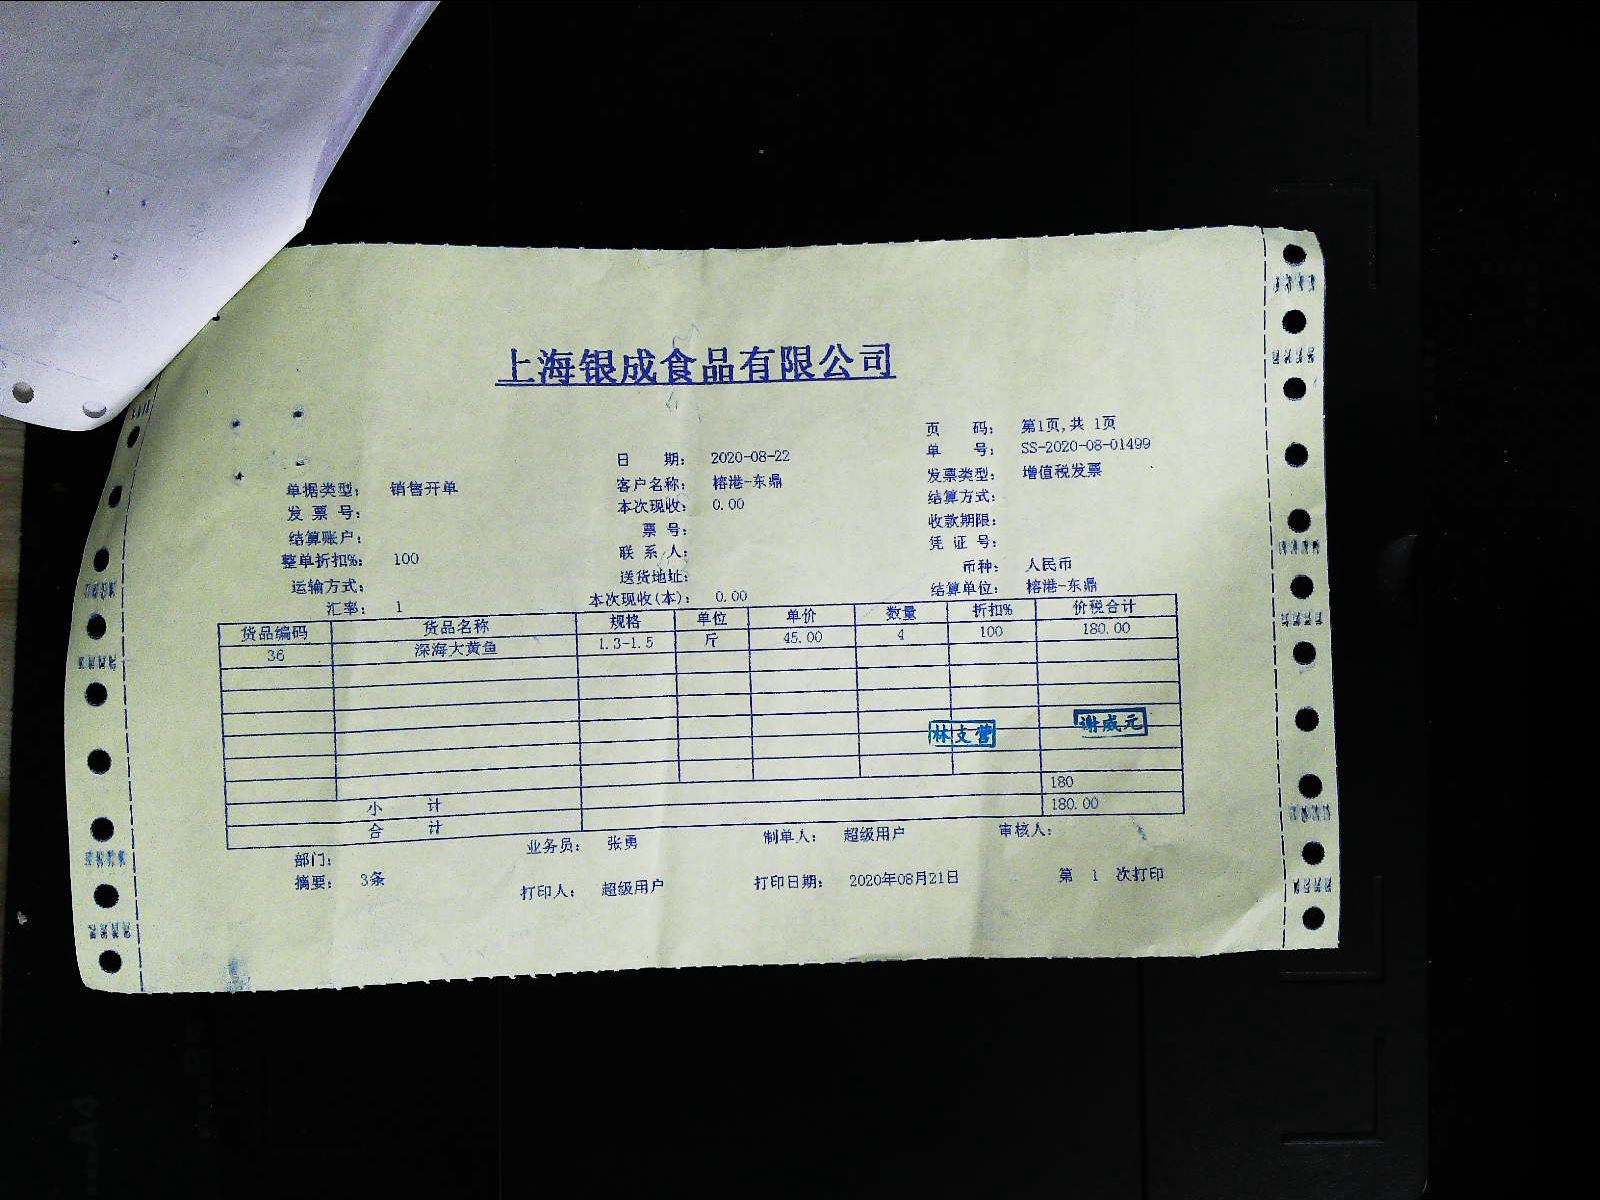 上海银成食品有限公司
页 码： 第1页,共 1页
日 期： 2020-08-22 单 号： SS-2020-08-01499
单据类型： 销售开单 客户名称： 榕港-东鼎 发票类型： 增值税发票
发 票 号： 本次现收： 0.00 结算方式：
结算账户： 票 号： 收款期限：
整单折扣%： 100 联 系 人： 凭 证 号：
运输方式： 送货地址： 币种： 人民币
汇率： 1 本次现收(本)： 0.00 结算单位： 榕港-东鼎
货品编码 货品名称 规格 单位 单价 数量 折扣% 价税合计
36 深海大黄鱼 1.3-1.5 斤 45.00 4 100 180.00
林支营 谢威元
小 计 180
合 计 180.00
部门： 业务员： 张勇 制单人： 超级用户 审核人：
摘要： 3条 打印人： 超级用户 打印日期： 2020年08月21日 第 1 次打印
A4